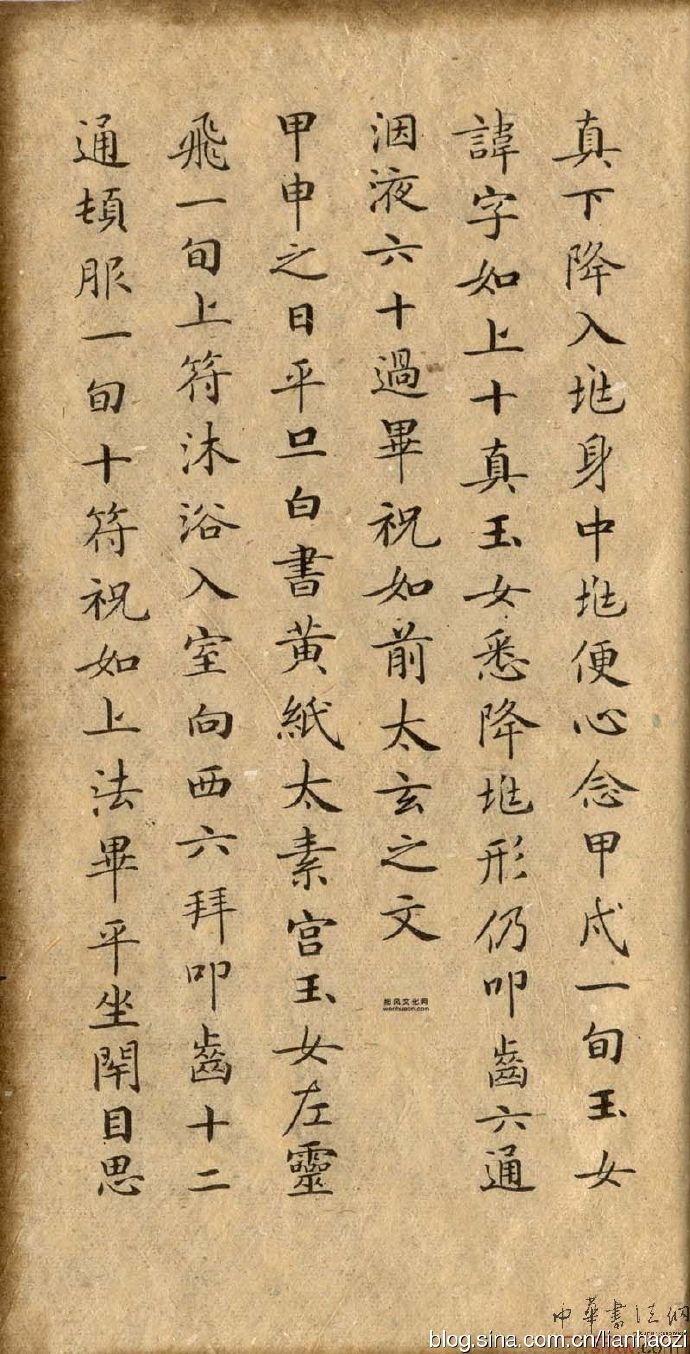 真下降入兆身中兆便心念甲戌一旬玉女
諱字如上十真玉女悉降兆形仍叩齒六通
咽液六十過畢祝如前太玄之文
甲申之日平旦白書黃紙太素宮玉女左靈
飛一旬上符沐浴入室向西六拜叩齒十二
通頓服一旬十符祝如上法畢平坐閉目思
中華書法網
blog.sina.com.cn/lianhaozi